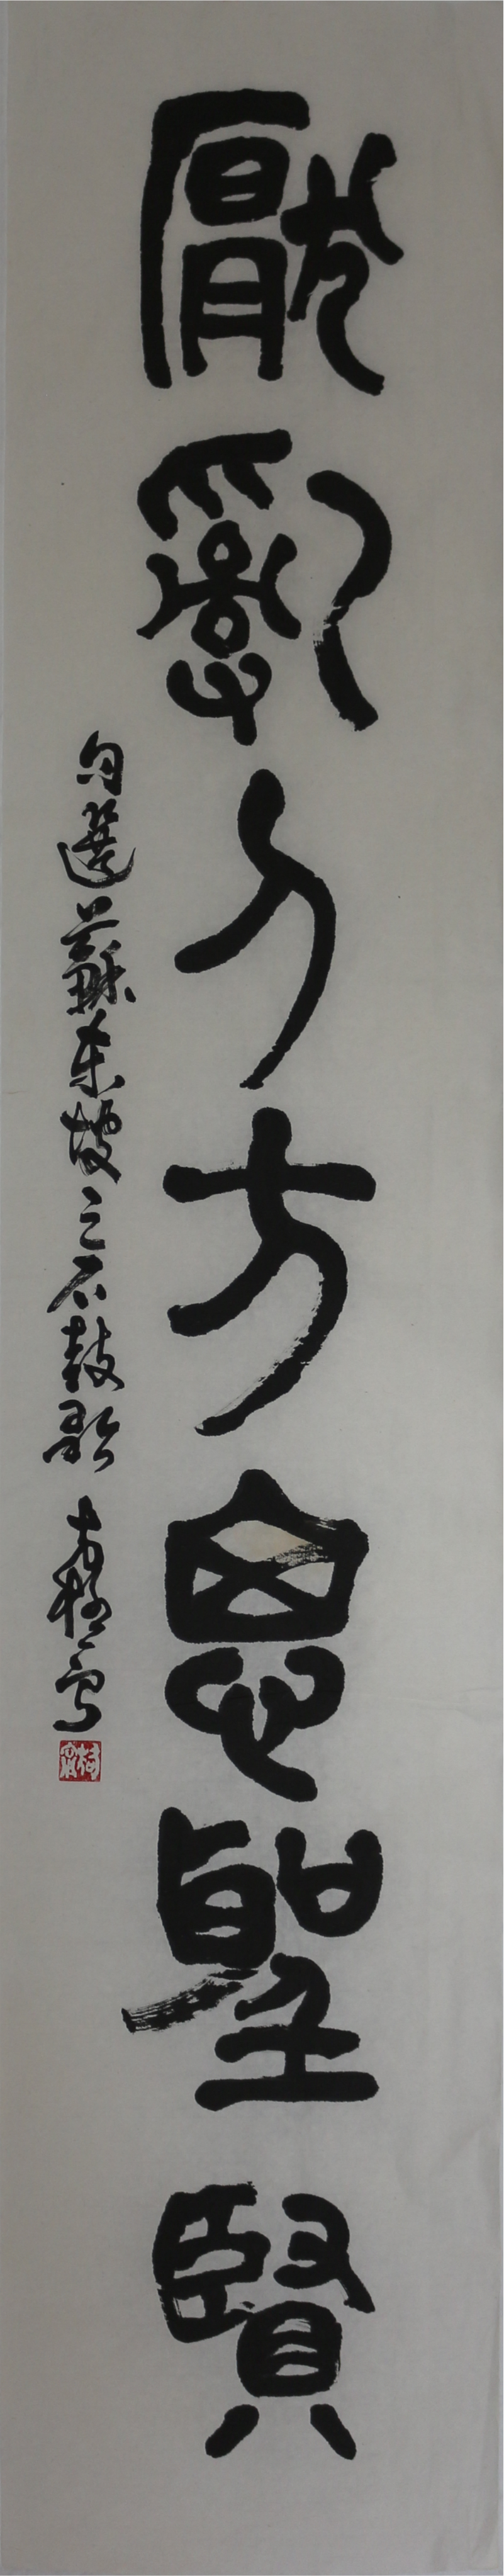 厭亂人方思聖賢
句選蘇東坡之石鼓歌